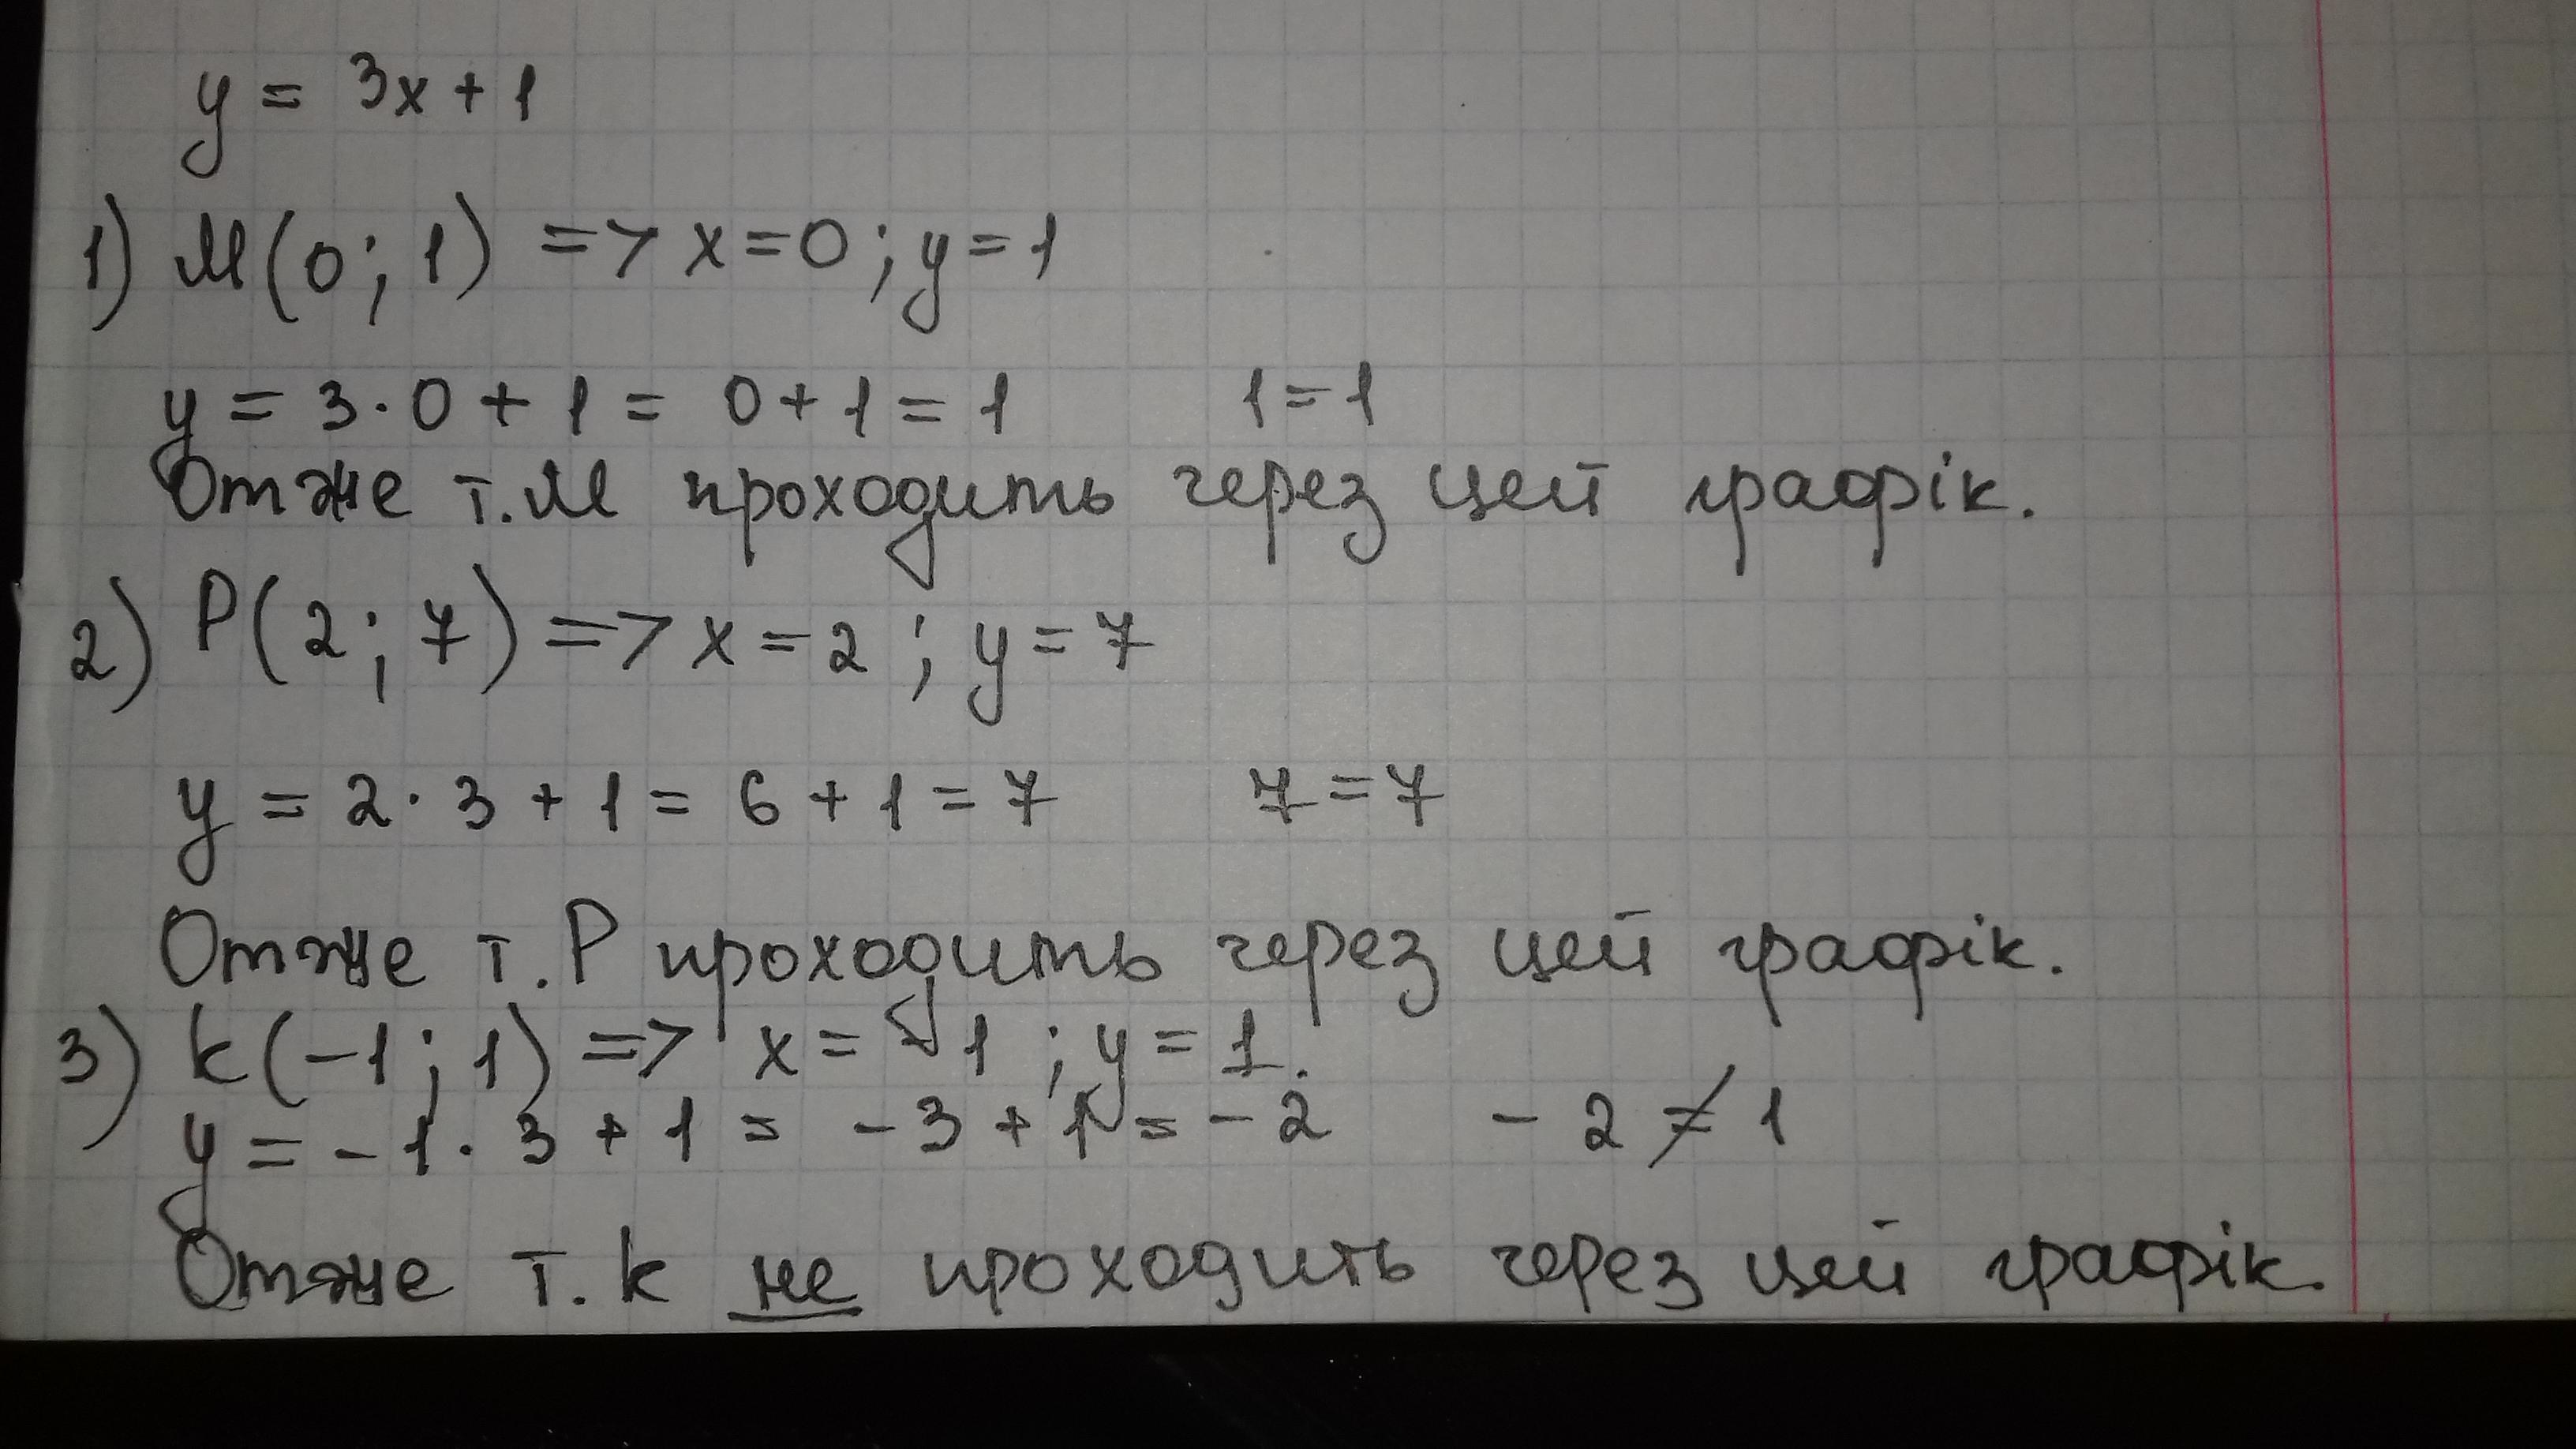 y = 3x + 1
1) M(0; 1) => x = 0; y = 1
y = 3 · 0 + 1 = 0 + 1 = 1 1 = 1
Отже т. M проходить через цей графік.
2) P(2; 7) => x = 2; y = 7
y = 2 · 3 + 1 = 6 + 1 = 7 7 = 7
Отже т. P проходить через цей графік.
3) k(-1; 1) => x = -1; y = 1.
y = -1 · 3 + 1 = -3 + 1 = -2 -2 ≠ 1
Отже т. k не проходить через цей графік.